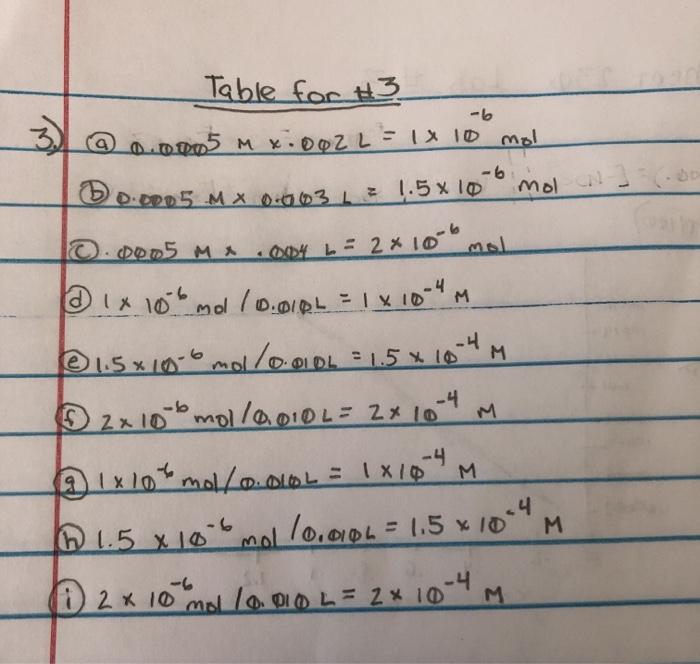 Table for #3
3.) ⓐ 0.0005 M x .002 L = 1 x 10⁻⁶ mol
ⓑ 0.0005 M x 0.003 L = 1.5 x 10⁻⁶ mol
ⓒ .0005 M x .004 L = 2 x 10⁻⁶ mol
ⓓ 1 x 10⁻⁶ mol / 0.010L = 1 x 10⁻⁴ M
ⓔ 1.5 x 10⁻⁶ mol / 0.010L = 1.5 x 10⁻⁴ M
ⓕ 2 x 10⁻⁶ mol / 0.010 L = 2 x 10⁻⁴ M
ⓖ 1 x 10⁻⁶ mol / 0.010L = 1 x 10⁻⁴ M
ⓗ 1.5 x 10⁻⁶ mol / 0.010L = 1.5 x 10⁻⁴ M
ⓘ 2 x 10⁻⁶ mol / 0.010 L = 2 x 10⁻⁴ M